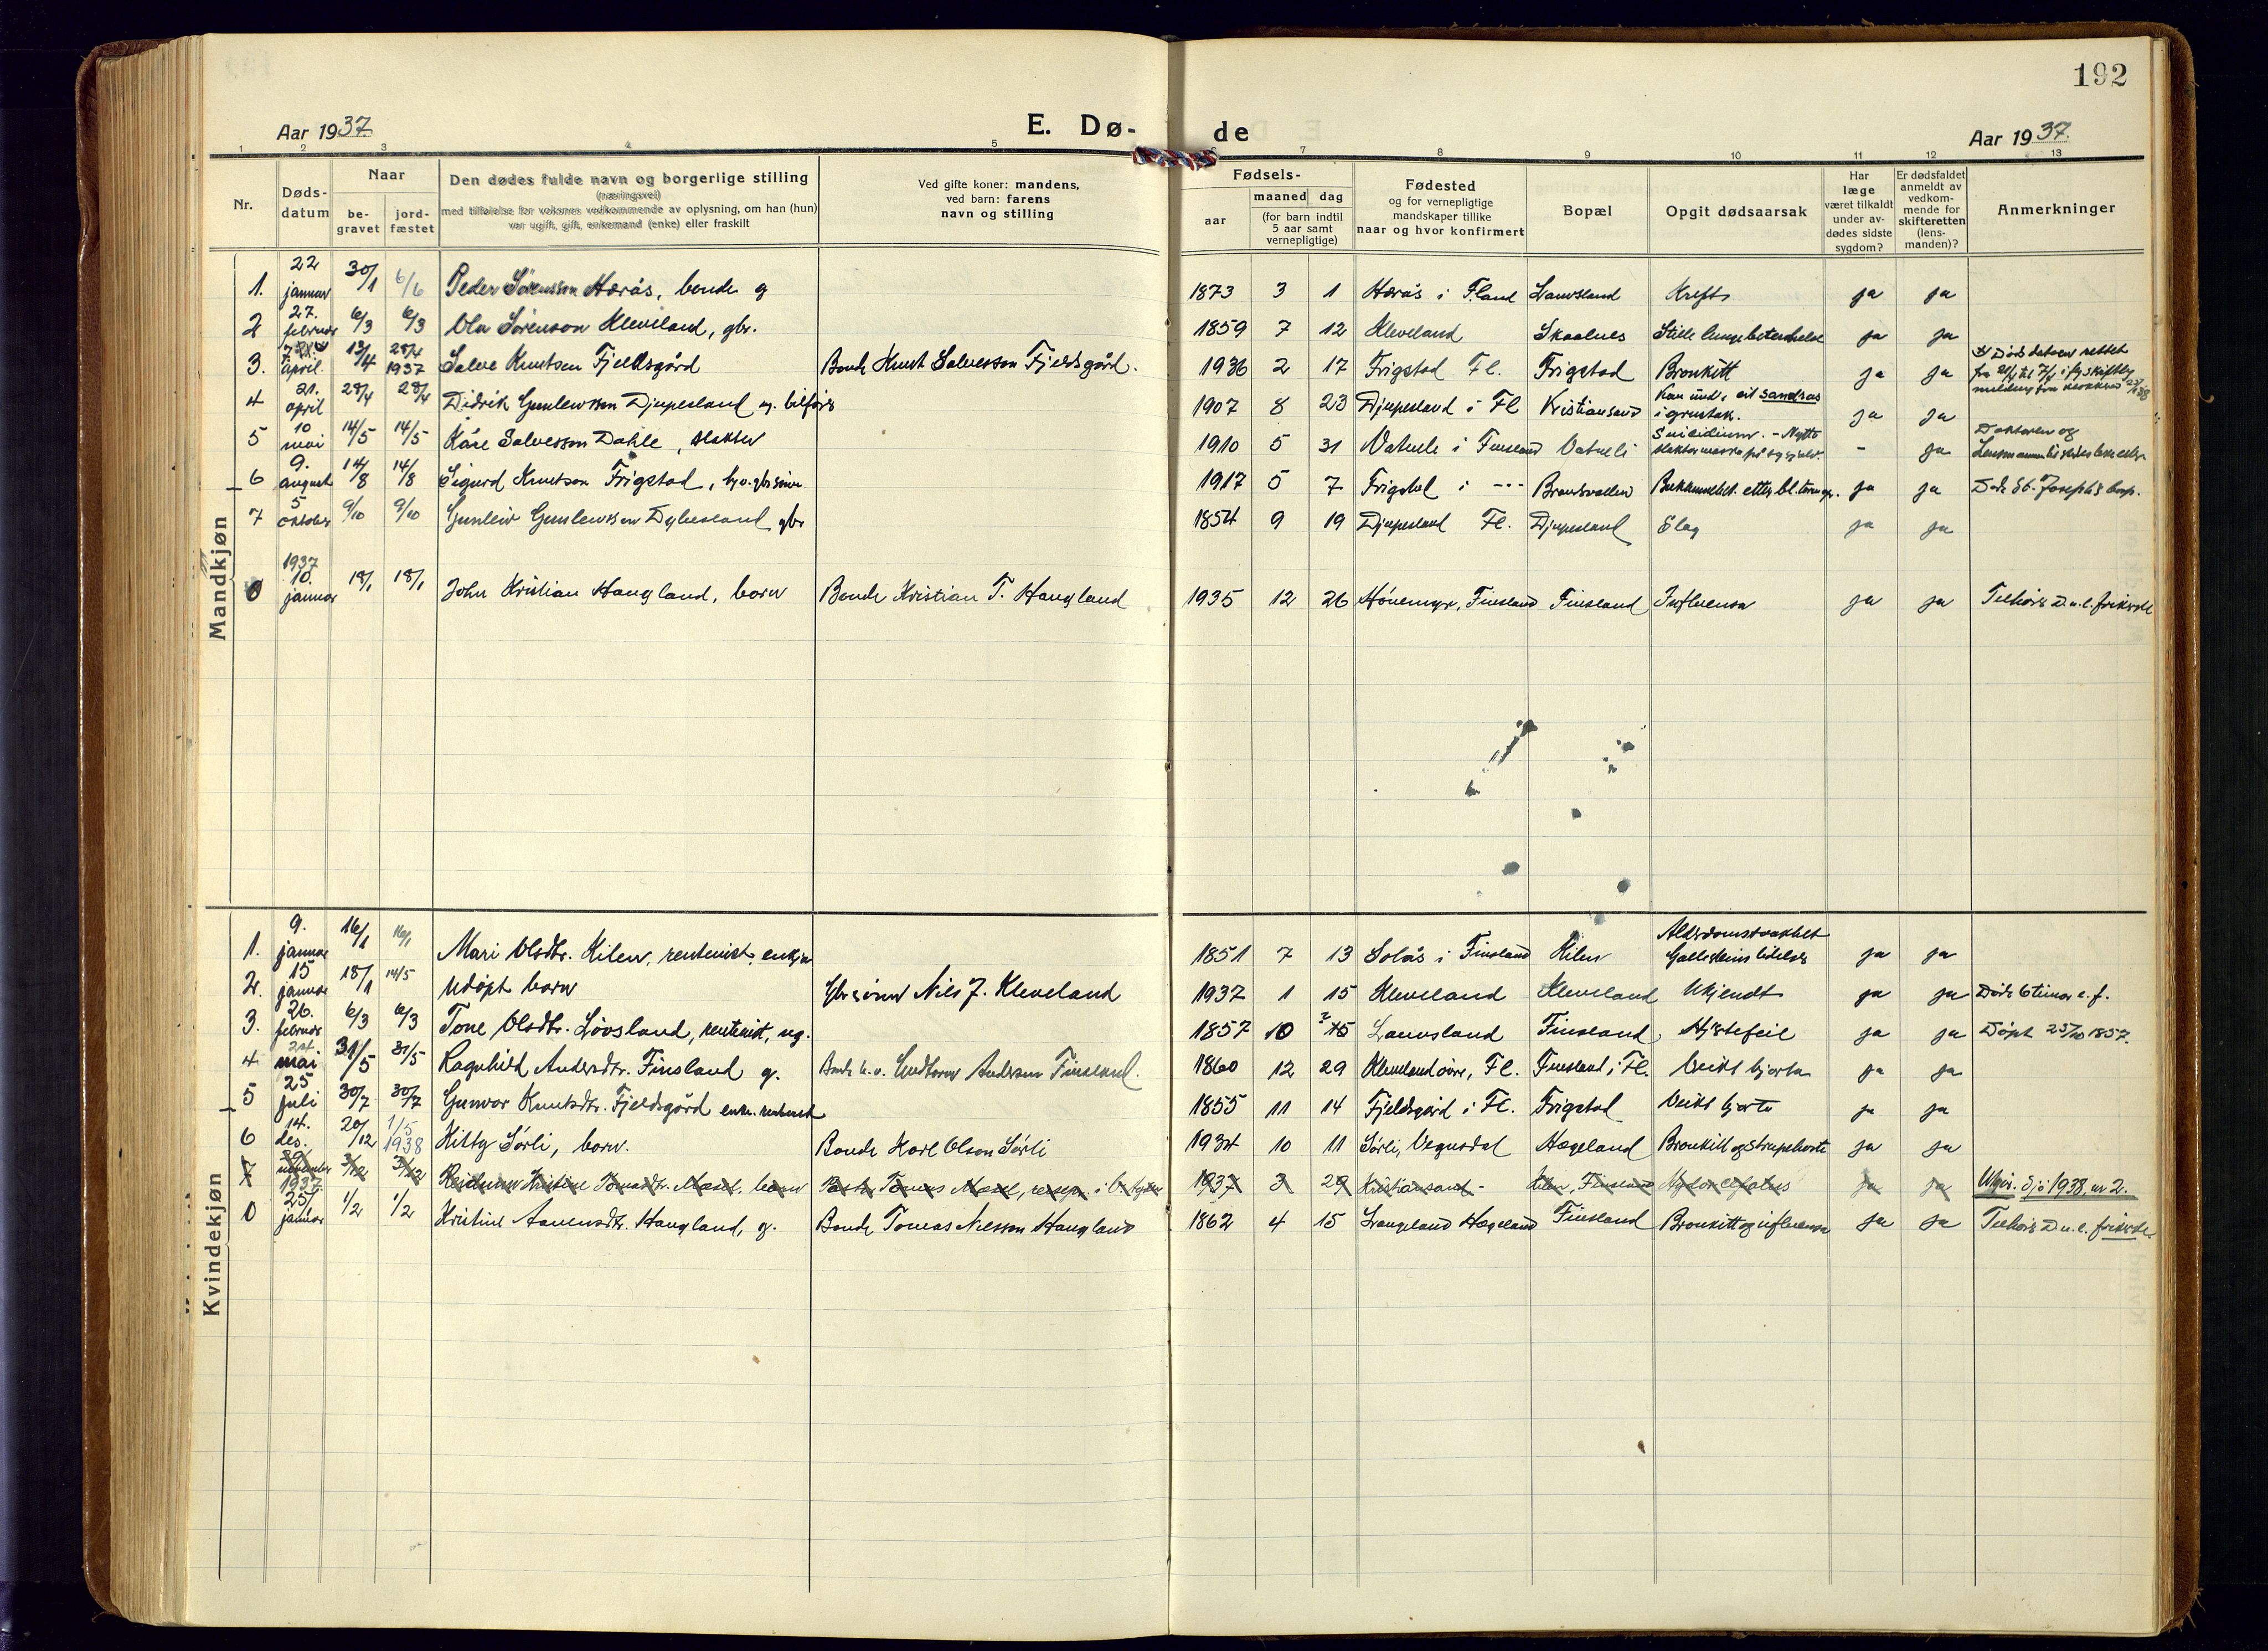 192
Aar 1937.
E. Dø-
de
Aar 1937.
1 2 3 4 5 6 7 8 9 10 11 12 13
Nr.
Døds-
datum
Naar
be-
gravet
jord-
fæstet
Den dødes fulde navn og borgerlige stilling
(næringsvei)
med tilføielse for voksnes vedkommende av oplysning, om han (hun)
var ugift, gift, enkemand (enke) eller fraskilt
Ved gifte koner: mandens,
ved barn: farens
navn og stilling
Fødsels-
aar
maaned dag
(for barn indtil
5 aar samt
vernepligtige)
Fødested
og for vernepligtige
mandskaper tillike
naar og hvor konfirmert
Bopæl
Opgit dødsaarsak
Har
læge
været tilkaldt
under av-
dødes sidste
sygdom?
Er dødsfaldet
anmeldt av
vedkom-
mende for
skifteretten
(lens-
manden)?
Anmerkninger
Mandkjøn
1. 22 januar 30/1 6/6 Peder Sörensson Herås, bonde g 1873 3 1 Herås i F.land Lauvsland Kreft ja ja
2 27. februar 6/3 6/3 Ola Sörenson Kleveland, gbr. 1859 7 12 Kleveland Skaalnes Stille lungebetendelse ja ja
3. 7 april. 13/4 28/4 1937 Salve Knutsen Fjeldsgård Bonde Knut Salvesson Fjeldsgård. 1936 2 17 Frigstad Fl. Frigstad Bronkitt ja ja Dödsdatoen rettet
fra 21/4 til 7/4 ifg skiftely
melding fra
4 21. april 28/4 28/4 Didrik Gunlewsson Djupesland ug. bilförer 1907 8 23 Djupesland i Fl Kristiansand Kom und. eit sandras
i grustak. ja ja
5 10 mai 14/5 14/5 Kåre Salvesson Dahle, slakter 1910 5 31 Vatneli i Finsland Vatneli Suicidium. - Nytta
slaktermaska på sig sjølv. - ja Doktoren og
Lensmannen
6 9. august 14/8 14/8 Sigurd Knutson Frigstad, gbrsønn 1917 5 7 Frigstad i --- Bronsvollen Bukhinnebet. etter bl.tarm ja ja Död St. Josephs hosp.
7 5 oktober 9/10 9/10 Gunleiv Gunlewssen Dybesland gbr 1854 9 19 Djupesland Fl. Djupesland Slag ja ja
0 1937 10. januar 18/1 18/1 John Kristian Haugland, barn Bonde Kristian T. Haugland 1935 12 26 Hönemyr, Finsland Finsland Influensa ja ja Tilhörer D.n.l. frikirke
Kvindekjøn
1. 9. januar 16/1 16/1 Mari Olsdtr. Kilen, rentenist, enkje 1851 7 13 Solås i Finsland Kilen Alderdomssvakhet
Gallesteins lidelse ja ja
2. 15 januar 18/1 14/5 Udøpt barn Gbrsønn Nils J. Kleveland 1937 1 15 Kleveland Kleveland Ukjendt ja ja Döde 6 timar e. f.
3. 26. februar 6/3 6/3 Tone Olsdtr. Lövsland, rentenist, ug. 1857 10 ? 15 Lauvsland Finsland Hjertefeil ja ja Döpt 25/10 1857.
4 24 mai 31/5 31/5 Ragnhild Andersdtr. Finsland g. Gudtorm Anderson Finsland. 1860 12 29 Kleveland övre, Fl. Finsland i Fl. Veikt hjarta ja ja
5 25 juli 30/7 30/7 Gunvor Knutsdtr. Fjeldsgård enke. rentenist 1855 11 14 Fjeldsgård i Fl. Frigstad Veikt hjarta ja ja
6 14. des. 20/12 1/5 1938 Kitty Sørli, barn. Bonde Karl Olson Sørli 1934 10 11 Sørli, Vegusdal Hægeland Bronkitt og strupehoste ja ja
7 29/ november 3/12 3/12 Reidunn Kristine Tomasdtr. Mosel, barn Tomas Mosel, 1937 3 29 Kristiansand - Kilen, Finsland Hydrocefalus ja ja Utgår. Sjå 1938 nr 2.
0 1937. 25/ januar 1/2 1/2 Kristine Aanensdtr. Haugland, g. Bonde Tomas Nilsson Haugland 1862 4 15 Langeland Hægeland Finsland Bronkitt og influensa ja ja Tilhörer D n. l. frikirke.